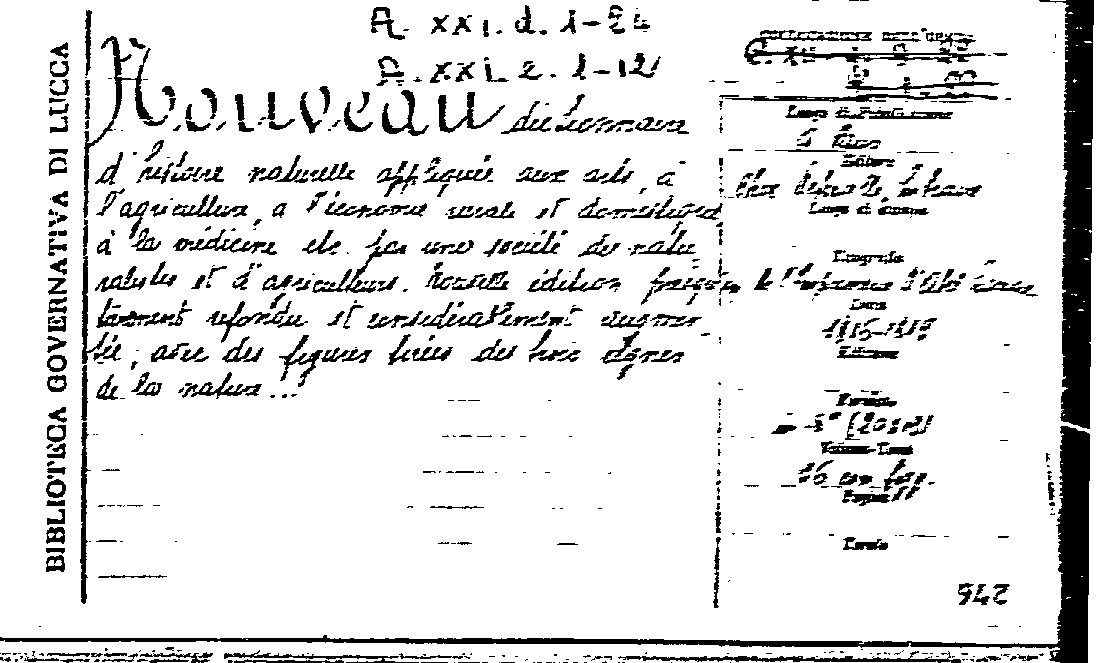 A. XXI. d. 1-24
A. XXI. e. 1-12
BIBLIOTECA GOVERNATIVA DI LUCCA
COLLOCAZIONE DELL'OPERA
Nouveau dictionnaire
d'histoire naturelle appliquée aux arts, à
l'agriculture, a l'économie rurale et domestique,
à la médicine etc. par une société de natu
ralistes et d'agriculteurs. Nouvelle édition presqu'en
tierement refondue et considérablement augmen
tée, avec des figures tirées des trois règnes
de la nature...
Luogo di Pubblicazione
à Paris
Editore
chez Deterville, libraire
Luogo di stampa
Tipografo
de l'Imprimerie d'Abel Lanoe
Data
1816-1819
Edizione
Formato
in-8° (20
Volumi-Tomi
36 con fig.
Pagine
942